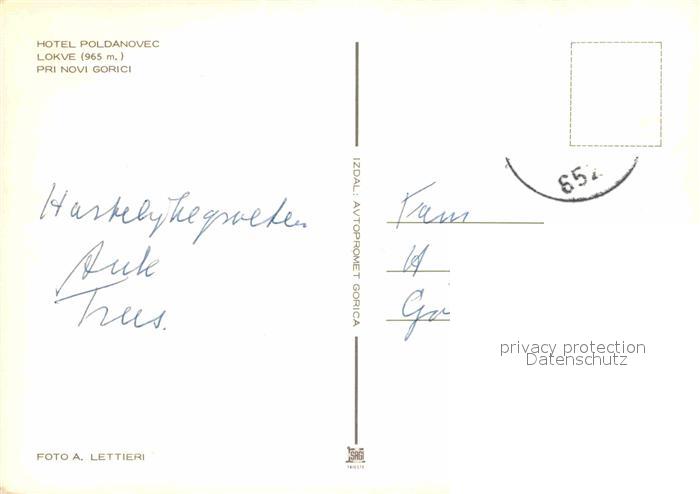 HOTEL POLDANOVEC
LOKVE (965 m.)
PRI NOVI GORICI
Hartelijke groeten
Auk
Trees.
IZDAL: AVTOPROMET GORICA
652
Fam
H
Go
privacy protection
Datenschutz
FOTO A. LETTIERI
SAGI
TRIESTE